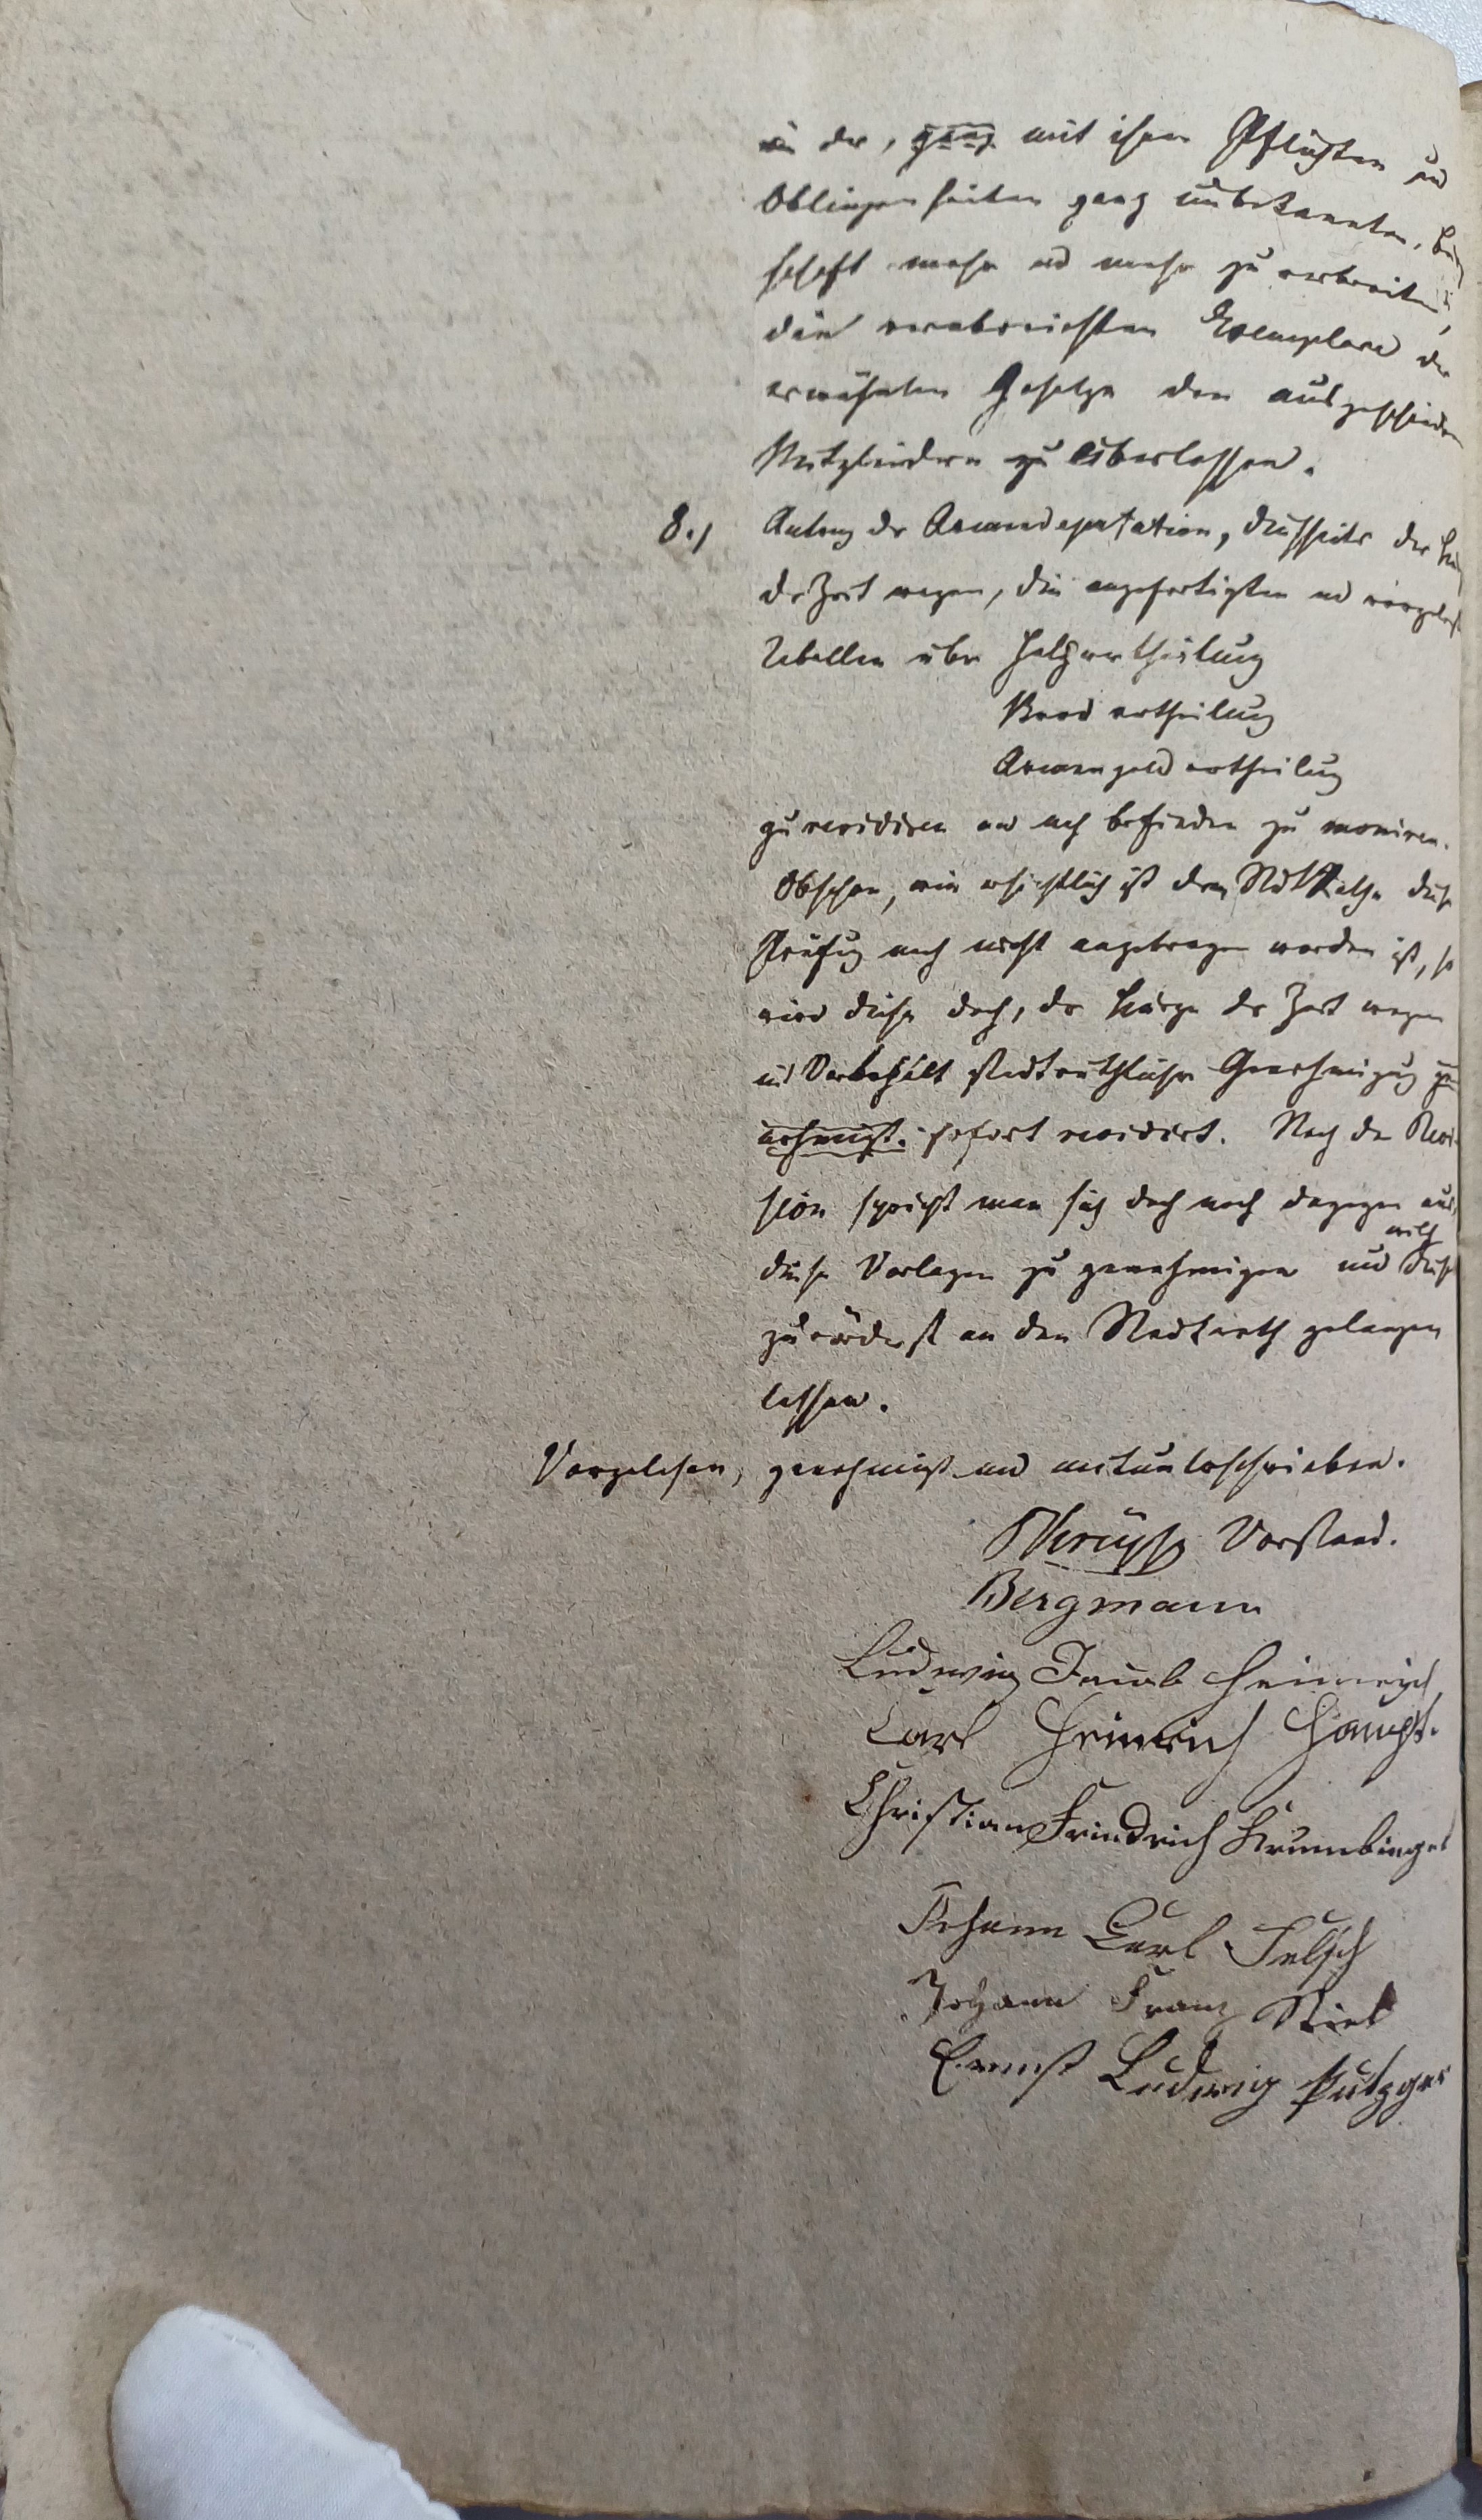 in der, ganz mit ihren Pflichten und
Obliegenheiten ganz unbekannten, Bür
schaft mehr und mehr zu verbreiten,
die verabreichten Exemplare der
erwähnten Gesetze den ausgeschieden
Mitgliedern zu überlassen.
8.) Antrag der Armendeputation, diesseits der Kür
der Zeit wegen, die angefertigten und vorgeleg
Tabellen über Holzvertheilung
Brod vertheilung
Armengeld vertheilung
zu revidiren und nach befinden zu moniren.
Obschon, wie ersichtlich ist dem StdtRathe diese
Prüfung noch nicht angetragen worden ist, so
wird diese doch, der Kürze der Zeit wegen
mit Vorbehalt stadträthlicher Genehmigung ge
nehmigt. sofort revidirt. Nach der Revi
sion spricht man sich doch noch dagegen aus,
diese Vorlagen zu genehmigen und diese
will
zuvörderst an den Stadtrath gelangen
lassen.
Vorgelesen, genehmigt und mitunterschrieben.
Vorstand.
Bergmann
Ludwig Jacob Heinrich
Carl Heinrich Haupt.
Christian Friedrich Krumbiegel
Johann Carl
Johann Franz
Ernst Ludwig Putzger